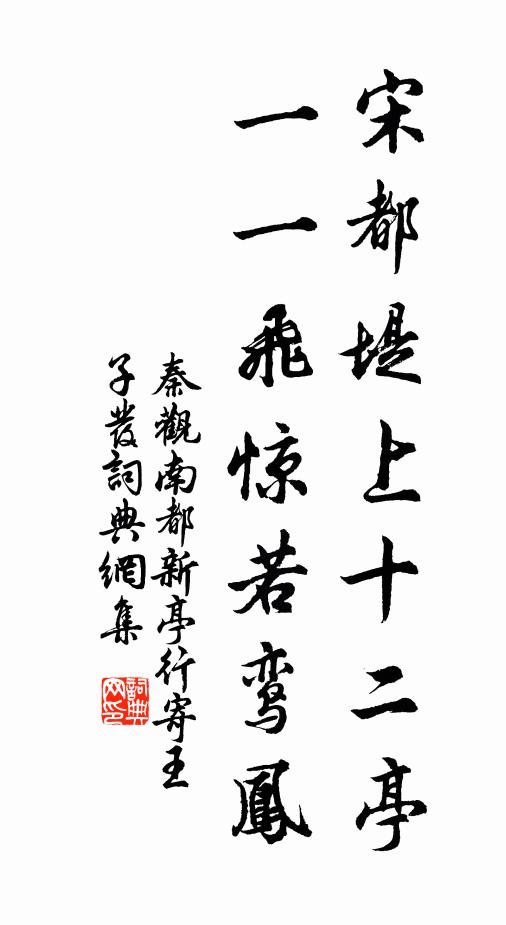 宋都堤上十二亭
一一飛惊若鸾鳳
秦觀南都新亭行寄王
子發詞典網集
詞典網印